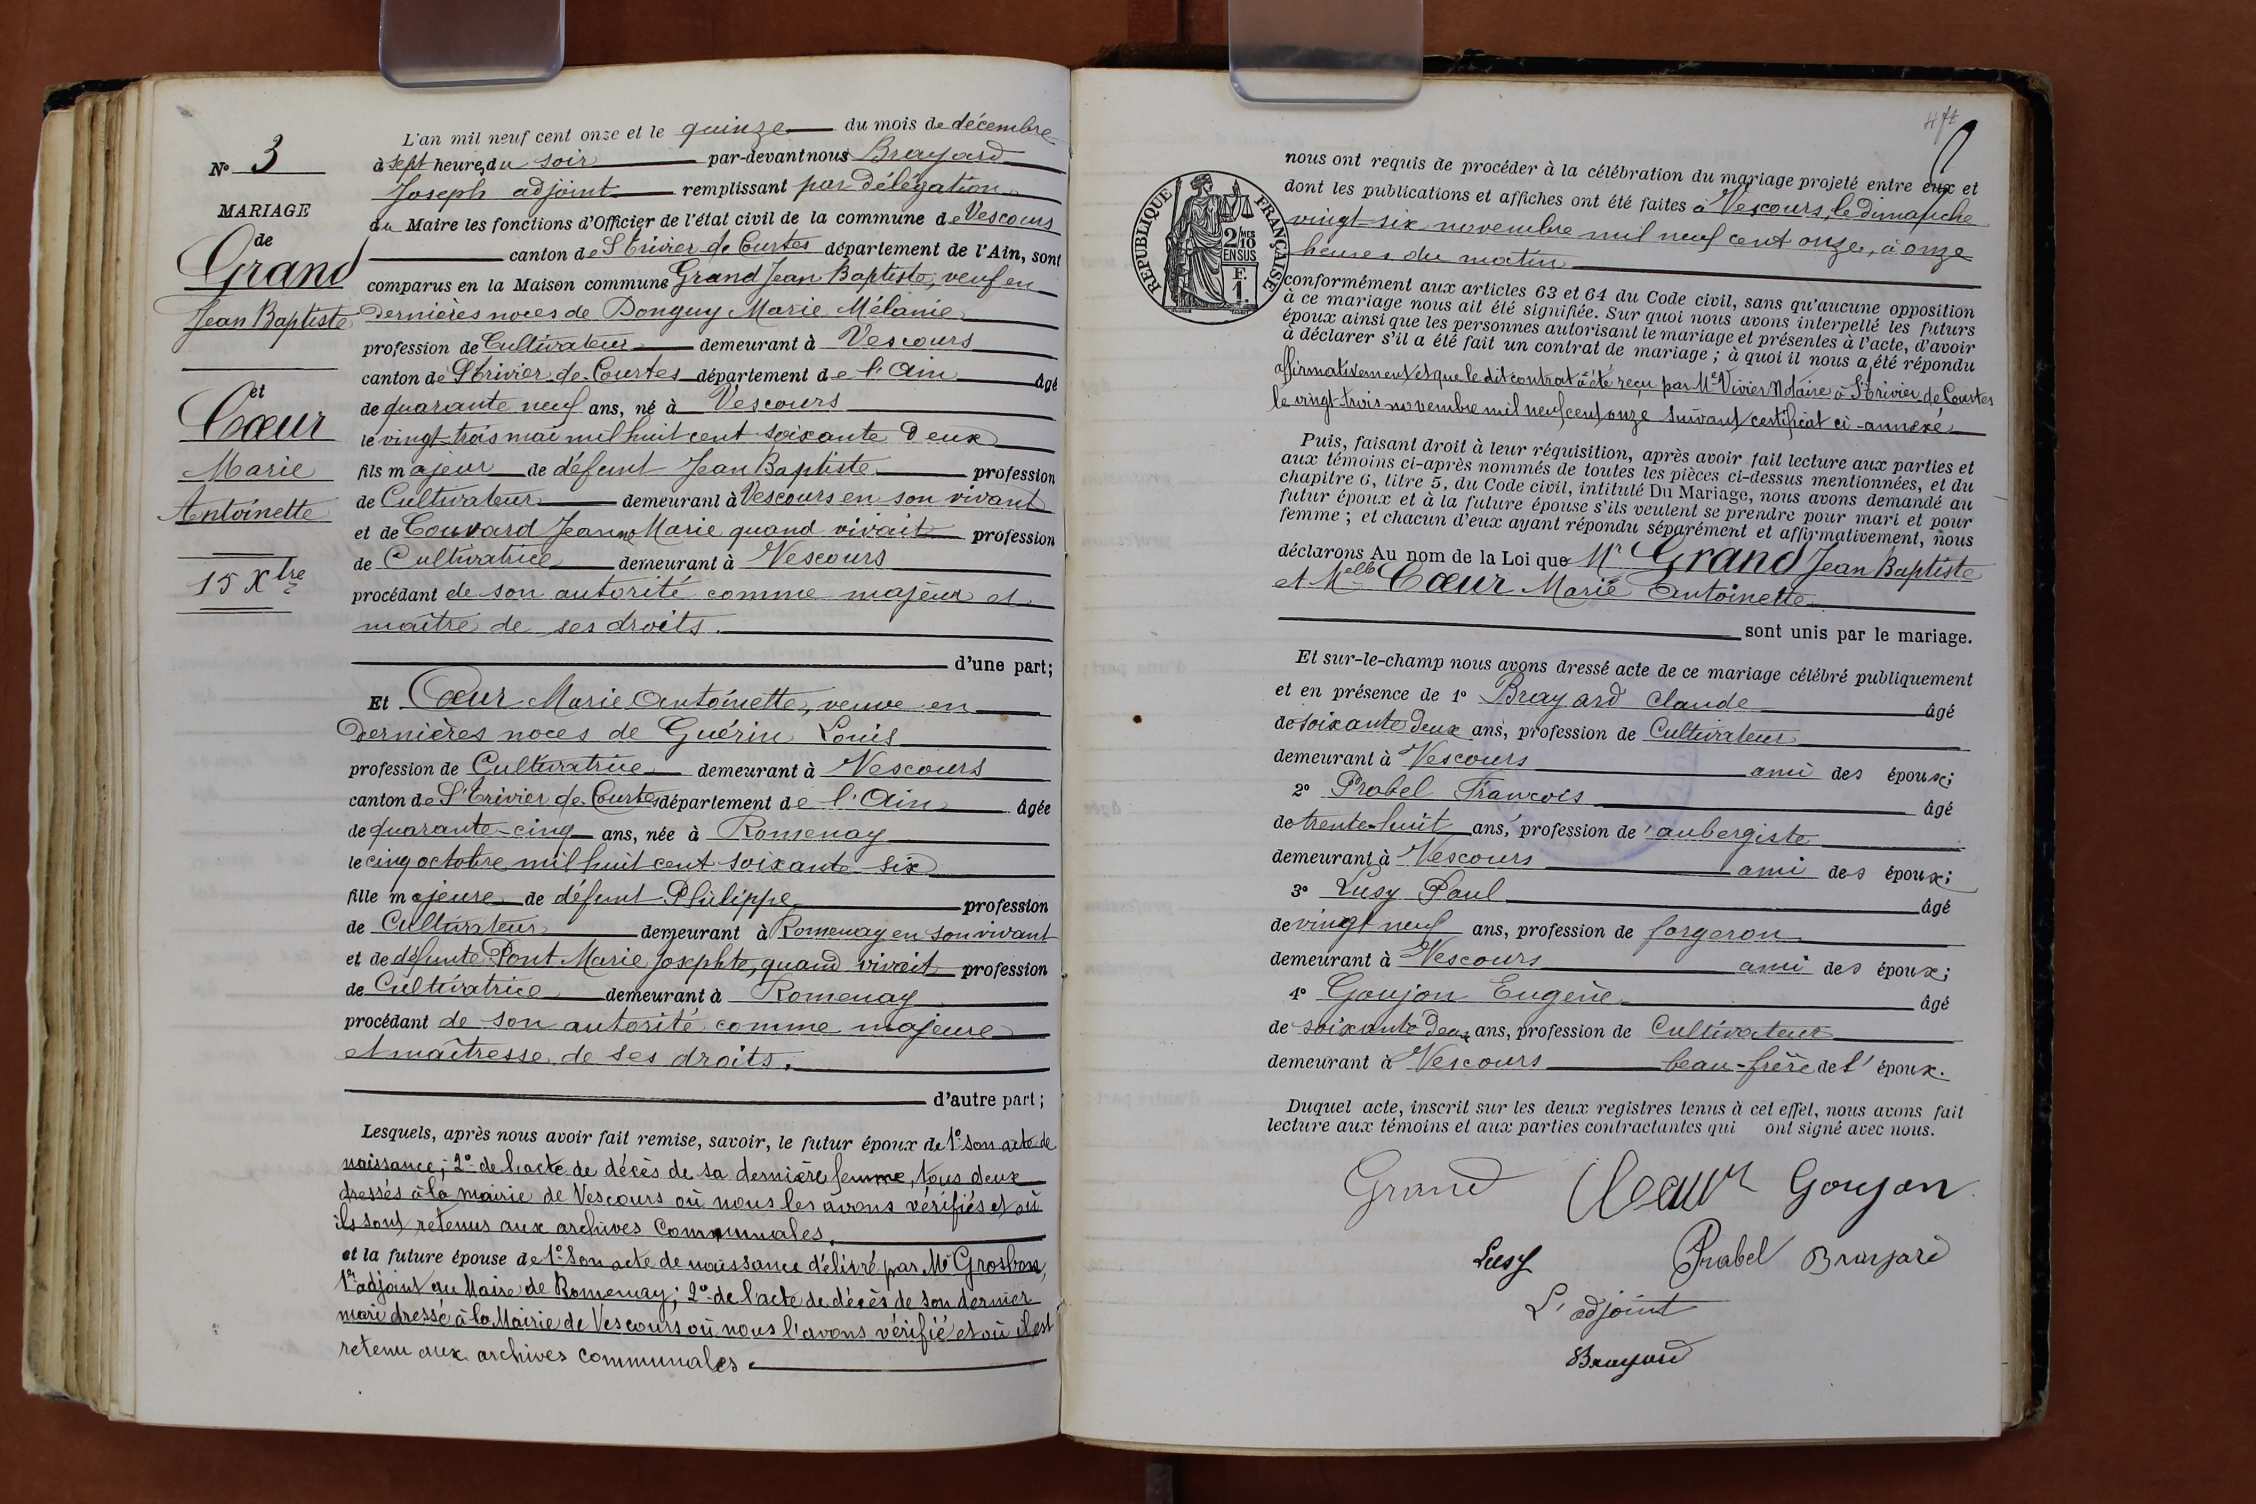 N° 3
MARIAGE
de
Grand
Jean Baptiste
et
Cœur
Marie
Antoinette
15 Xbre
L'an mil neuf cent onze et le quinze du mois de décembre
à sept heures du soir par-devant nous Brayard
Joseph adjoint remplissant par délégation
du Maire les fonctions d'Officier de l'état civil de la commune de Vescours
canton de St Trivier de Courtes département de l'Ain, sont
comparus en la Maison commune Grand Jean Baptiste, veuf en
dernières noces de Donguy Marie Mélanie
profession de Cultivateur demeurant à Vescours
canton de St Trivier de Courtes département de l'Ain âgé
de quarante neuf ans, né à Vescours
le vingt-trois mai mil huit cent soixante deux
fils majeur de défunt Jean Baptiste profession
de Cultivateur demeurant à Vescours en son vivant
et de Couvard Jeanne Marie quand vivait profession
de Cultivatrice demeurant à Vescours
procédant de son autorité comme majeur et
maître de ses droits.
d'une part;
Et Cœur Marie Antoinette, veuve en
dernières noces de Guérin Louis
profession de Cultivatrice demeurant à Vescours
canton de St Trivier de Courtes département de l'Ain âgée
de quarante-cinq ans, née à Romenay
le cinq octobre mil huit cent soixante six
fille majeure de défunt Philippe profession
de Cultivateur demeurant à Romenay en son vivant
et de défunte Pont Marie Josephte, quand vivait profession
de Cultivatrice demeurant à Romenay
procédant de son autorité comme majeure
et maîtresse de ses droits.
d'autre part;
Lesquels, après nous avoir fait remise, savoir, le futur époux de 1° son acte de
naissance; 2° de l'acte de décès de sa dernière femme, tous deux
dressés à la mairie de Vescours où nous les avons vérifiés et où
ils sont retenus aux archives Communales.
et la future épouse de 1° Son acte de naissance délivré par Mr Grosbon,
1er adjoint au Maire de Romenay; 2° de l'acte de décès de son dernier
mari dressé à la Mairie de Vescours où nous l'avons vérifié et où il est
retenu aux archives communales.
nous ont requis de procéder à la célébration du mariage projeté entre eux et
dont les publications et affiches ont été faites à Vescours, le dimanche
vingt-six novembre mil neuf cent onze, à onze
heures du matin
RÉPUBLIQUE FRANÇAISE
2/MES
10
EN SUS
F.
1.
conformément aux articles 63 et 64 du Code civil, sans qu'aucune opposition
à ce mariage nous ait été signifiée. Sur quoi nous avons interpellé les futurs
époux ainsi que les personnes autorisant le mariage et présentes à l'acte, d'avoir
à déclarer s'il a été fait un contrat de mariage; à quoi il nous a été répondu
affirmativement et que le dit contrat a été reçu par Me Vivier Notaire à St Trivier de Courtes
le vingt-trois novembre mil neuf cent onze suivant certificat ci-annexé
Puis, faisant droit à leur réquisition, après avoir fait lecture aux parties et
aux témoins ci-après nommés de toutes les pièces ci-dessus mentionnées, et du
chapitre 6, titre 5, du Code civil, intitulé Du Mariage, nous avons demandé au
futur époux et à la future épouse s'ils veulent se prendre pour mari et pour
femme; et chacun d'eux ayant répondu séparément et affirmativement, nous
déclarons Au nom de la Loi que Mr Grand Jean Baptiste
et Melle Cœur Marie Antoinette
sont unis par le mariage.
Et sur-le-champ nous avons dressé acte de ce mariage célébré publiquement
et en présence de 1° Brayard Claude âgé
de soixante deux ans, profession de Cultivateur
demeurant à Vescours ami des époux;
2° Probel François âgé
de trente-huit ans, profession de aubergiste
demeurant à Vescours ami des époux;
3° Lusy Paul âgé
de vingt neuf ans, profession de forgeron
demeurant à Vescours ami des époux;
4° Goujon Eugène âgé
de soixante deux ans, profession de Cultivateur
demeurant à Vescours beau-frère de l'époux.
Duquel acte, inscrit sur les deux registres tenus à cet effet, nous avons fait
lecture aux témoins et aux parties contractantes qui ont signé avec nous.
Grand Cœur Goujon
Lusy Probel Brayard
L'adjoint
Brayard